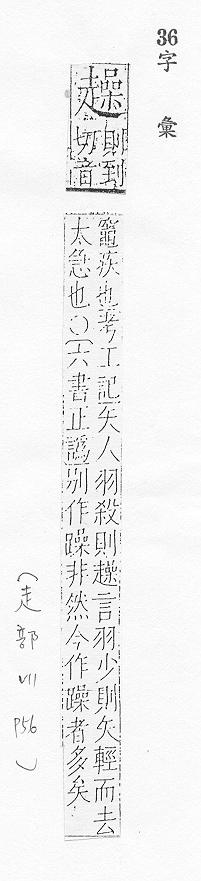 36 字彙
趮
則到
切音
竈疾也考工記矢人羽殺則趮言羽少則矢輕而去
太急也〇〔六書正譌〕別作躁非然今作躁者多矣
(走部 VII P56)